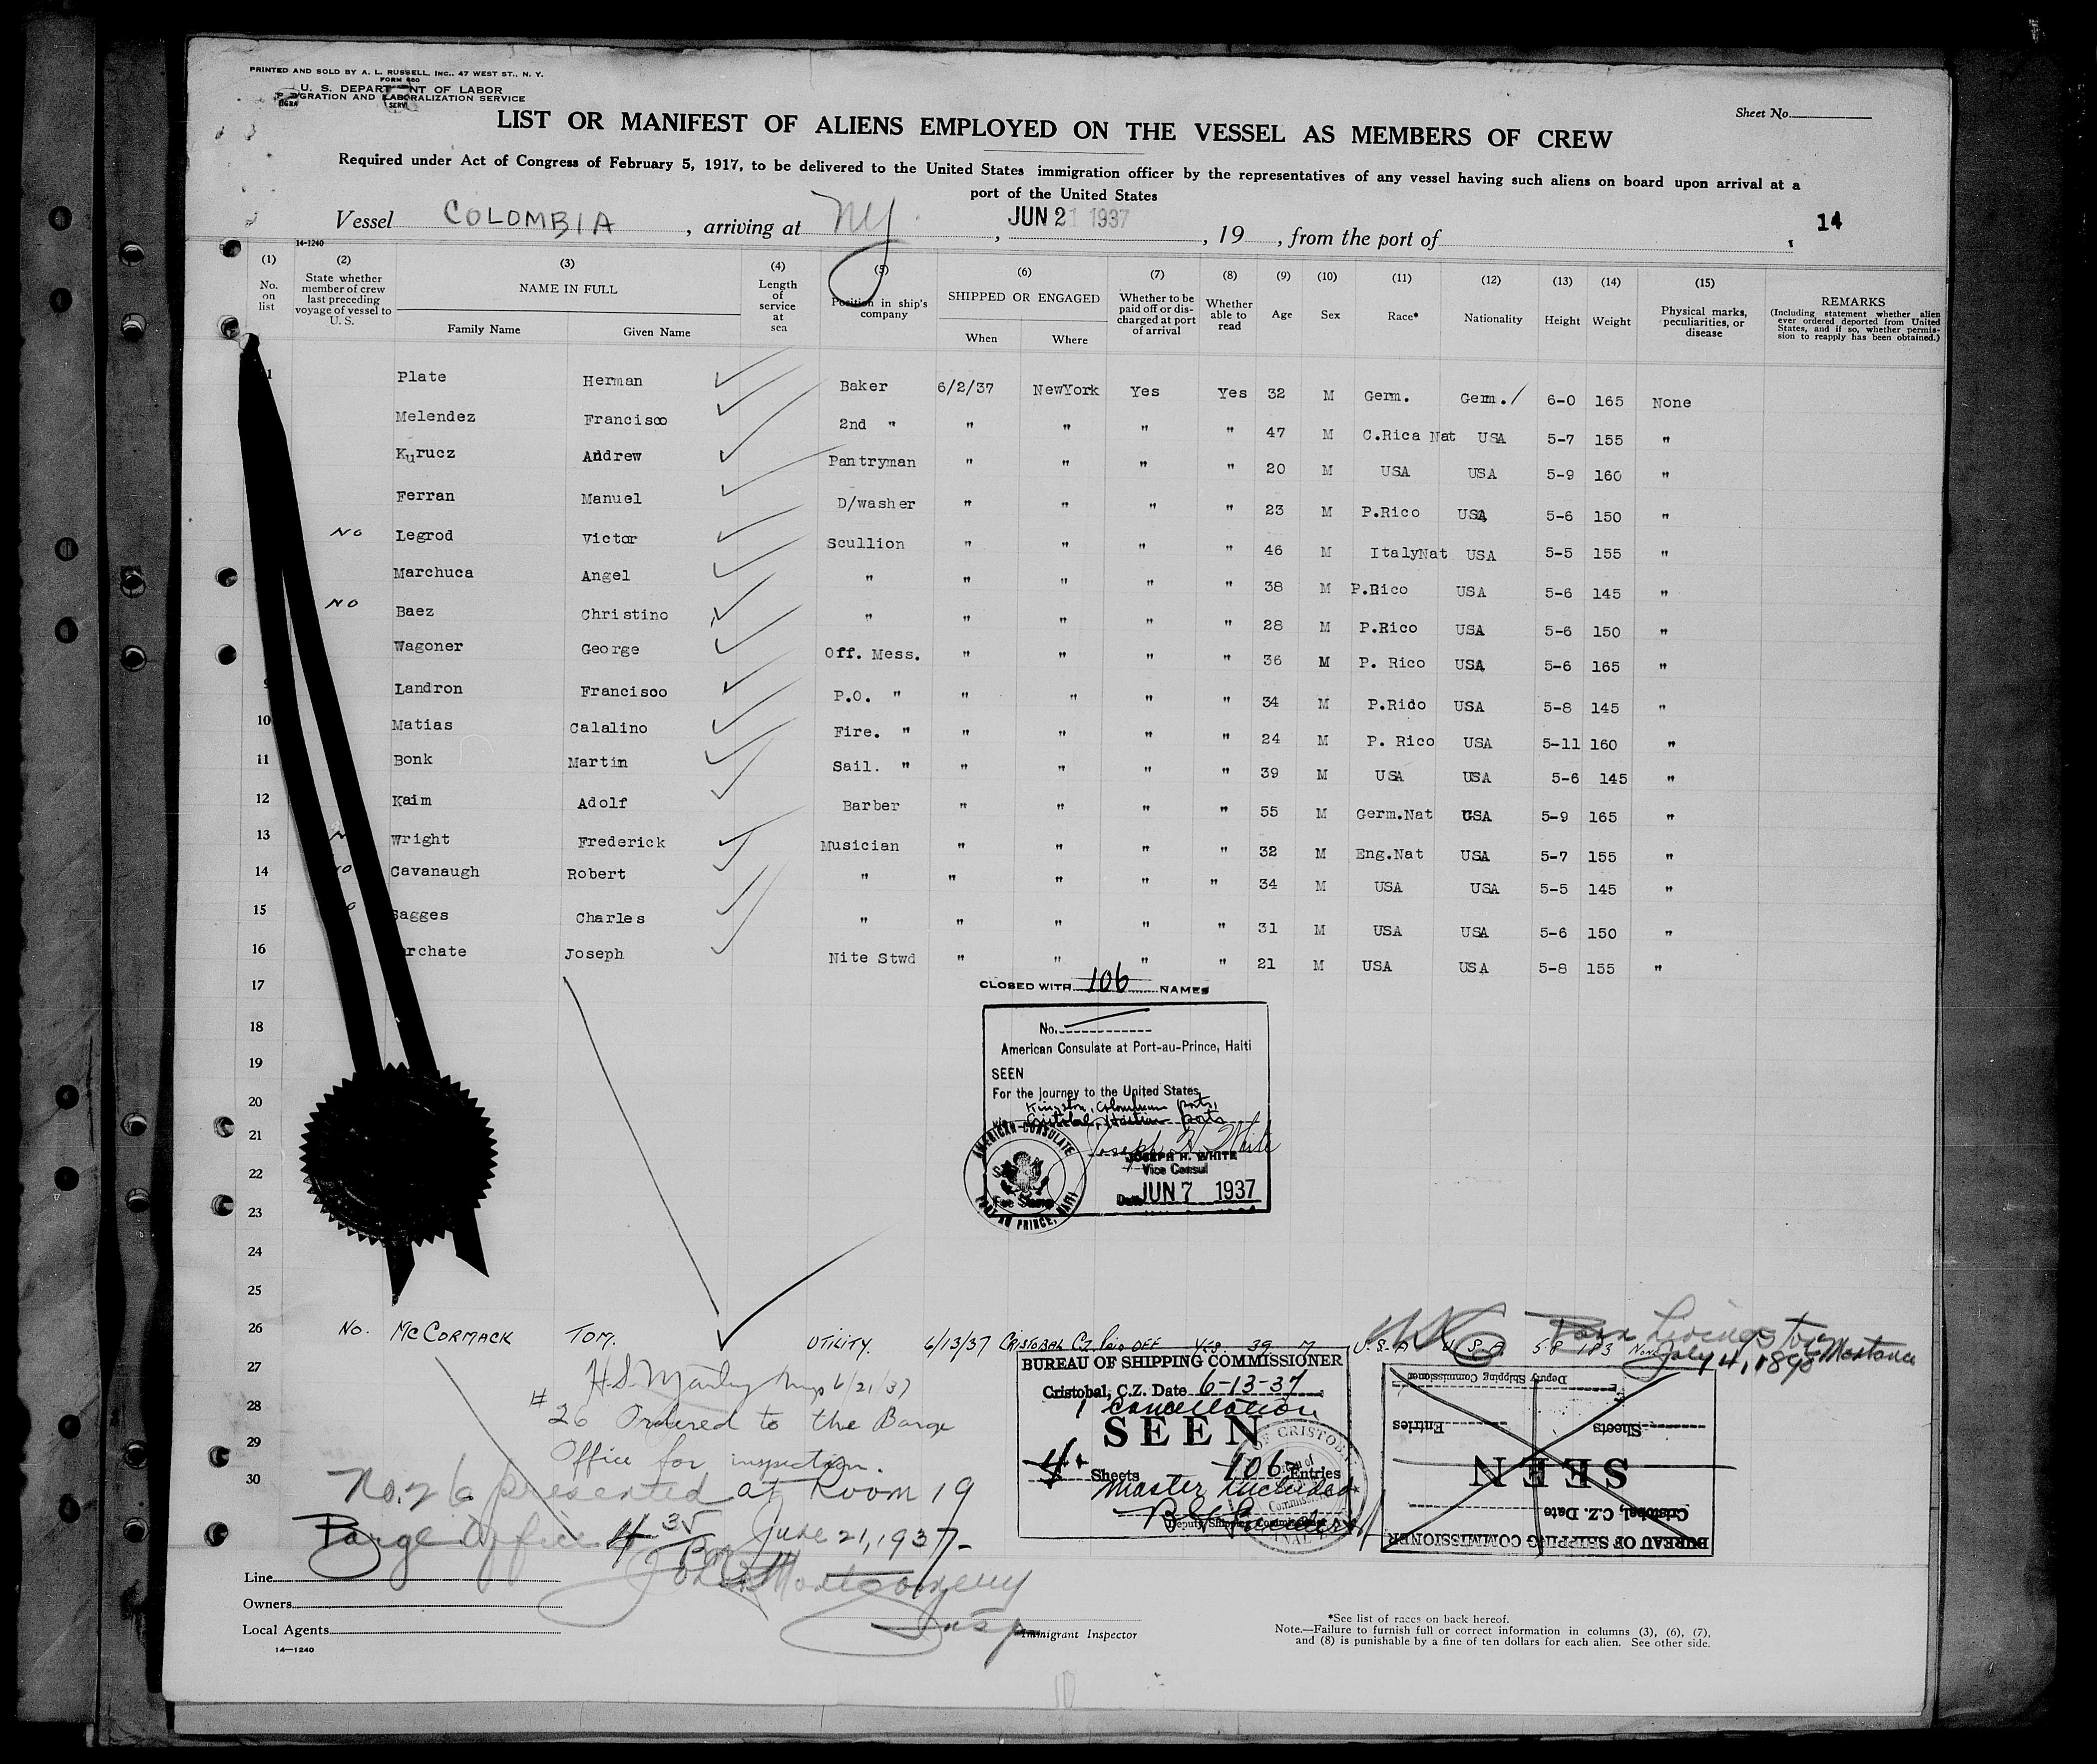 PRINTED AND SOLD BY A. L. RUSSELL, INC., 47 WEST ST., N. Y.
FORM 680
U. S. DEPARTMENT OF LABOR
IMMIGRATION AND NATURALIZATION SERVICE
Sheet No.
LIST OR MANIFEST OF ALIENS EMPLOYED ON THE VESSEL AS MEMBERS OF CREW
Required under Act of Congress of February 5, 1917, to be delivered to the United States immigration officer by the representatives of any vessel having such aliens on board upon arrival at a
port of the United States
Vessel COLOMBIA, arriving at NY, JUN 21 1937, 19, from the port of
14
14-1240
(1) No. on list
(2) State whether member of crew last preceding voyage of vessel to U. S.
(3) NAME IN FULL Family Name Given Name
(4) Length of service at sea
(5) Position in ship's company
(6) SHIPPED OR ENGAGED When Where
(7) Whether to be paid off or discharged at port of arrival
(8) Whether able to read
(9) Age
(10) Sex
(11) Race*
(12) Nationality
(13) Height
(14) Weight
(15) Physical marks, peculiarities, or disease
REMARKS (Including statement whether alien ever ordered deported from United States, and if so, whether permission to reapply has been obtained.)
1 Plate Herman Baker 6/2/37 NewYork Yes Yes 32 M Germ. Germ. 6-0 165 None
Melendez Francisco 2nd " " " " " 47 M C.Rica Nat USA 5-7 155 "
Kurucz Andrew Pantryman " " " " 20 M USA USA 5-9 160 "
Ferran Manuel D/washer " " " " 23 M P.Rico USA 5-6 150 "
No Legrod Victor Scullion " " " " 46 M ItalyNat USA 5-5 155 "
Marchuca Angel " " " " " 38 M P.Rico USA 5-6 145 "
No Baez Christino " " " " " 28 M P.Rico USA 5-6 150 "
Wagoner George Off. Mess. " " " " 36 M P. Rico USA 5-6 165 "
9 Landron Francisco P.O. " " " " " 34 M P.Rido USA 5-8 145 "
10 Matias Calalino Fire. " " " " " 24 M P. Rico USA 5-11 160 "
11 Bonk Martin Sail. " " " " " 39 M USA USA 5-6 145 "
12 Kaim Adolf Barber " " " " 55 M Germ.Nat USA 5-9 165 "
13 Wright Frederick Musician " " " " 32 M Eng.Nat USA 5-7 155 "
14 Cavanaugh Robert " " " " " 34 M USA USA 5-5 145 "
15 Sagges Charles " " " " " 31 M USA USA 5-6 150 "
16 rchate Joseph Nite Stwd " " " " 21 M USA USA 5-8 155 "
17
CLOSED WITH 106 NAMES
18
19
20
21
22
23
24
25
No.
American Consulate at Port-au-Prince, Haiti
SEEN
For the journey to the United States
Kingston, Colombian ports,
Cristobal, Haitian ports
Joseph H. White
JOSEPH H. WHITE
Vice Consul
Date JUN 7 1937
AMERICAN CONSULATE
Fee Stamp
PORT AU PRINCE, HAITI
26 No. McCORMACK TOM. UTILITY. 6/13/37 CRISTOBAL C.Z. Paid OFF Yes 39 M U.S.A U.S.A. 5 8 183 None
Livingston Montana
July 4, 1898
27
28
29
30
H.S. Manley Insp 6/21/37
# 26 Ordered to the Barge
Office for inspection.
No. 26 presented at Room 19
Barge Office 4 35 Pm June 21, 1937-
Montgomery
Insp
BUREAU OF SHIPPING COMMISSIONER
Cristobal, C.Z. Date 6-13-37
1 Cancellation
SEEN
4 Sheets 106 Entries
Master Included
Deputy Shipping Commissioner
BUREAU OF SHIPPING COMMISSIONER
Cristobal, C.Z. Date
SEEN
Sheets Entries
Deputy Shipping Commissioner
Line
Owners
Local Agents
14—1240
Immigrant Inspector
*See list of races on back hereof.
Note.—Failure to furnish full or correct information in columns (3), (6), (7),
and (8) is punishable by a fine of ten dollars for each alien. See other side.